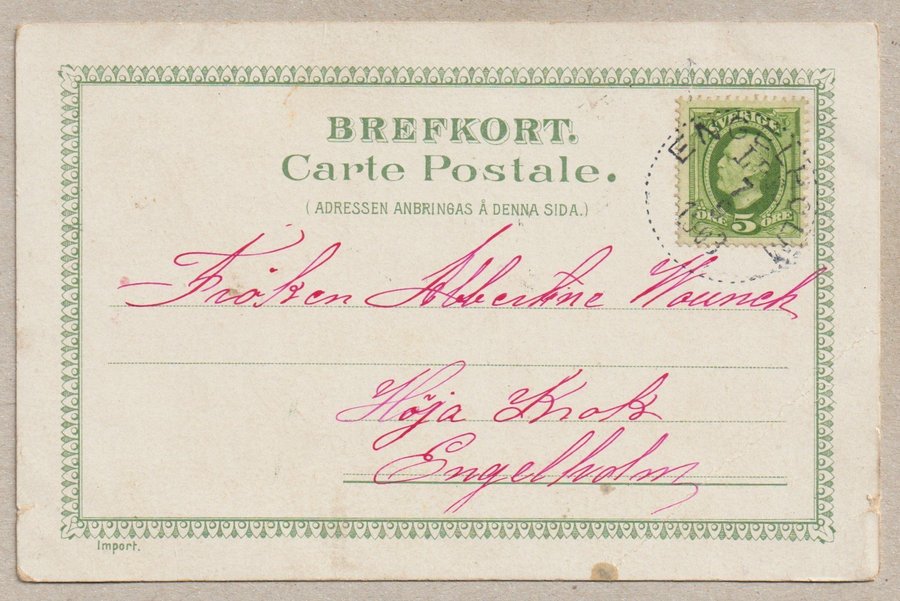 BREFKORT.
Carte Postale.
(ADRESSEN ANBRINGAS Å DENNA SIDA.)
SVERIGE
5
ÖRE
ENGELHOLM
Fröken Albertine Wounck
Höja Krok
Engelholm
Import.